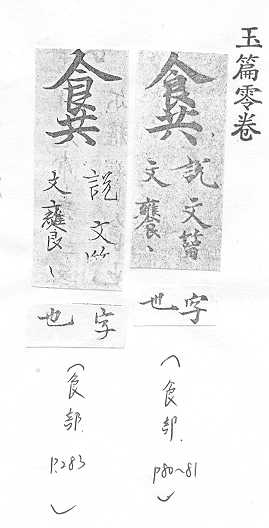 玉篇零卷
說文籀
文饔、
字
也
（食部 p80~81）
說文竹
文饔、
字
也
（食部 P.283）